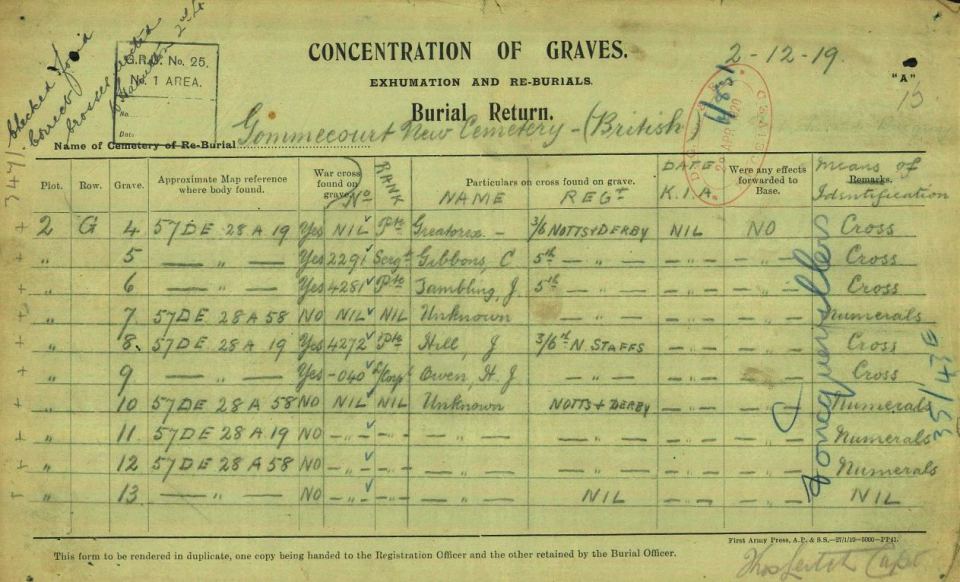 Checked for id
Correct
Crosses erected
G.R.U. No. 25.
No. 1 AREA.
No
Date:
CONCENTRATION OF GRAVES.
2-12-19.
EXHUMATION AND RE-BURIALS.
"A"
15
Burial Return.
Name of Cemetery of Re-Burial Gommecourt New Cemetery - (British)
29 APR 1920
Plot. Row. Grave. Approximate Map reference where body found. War cross found on grave. No RANK Particulars on cross found on grave. NAME REGT DATE K.I.A. Were any effects forwarded to Base. Means of Remarks. Identification
2 G 4 57DE 28 A 19 Yes NIL Pte Greatorex - 3/6 NOTTS & DERBY NIL NO Cross
" 5 — " — Yes 2291 Sergt Gibbons, C 5th — " — — " — — " — Cross
" 6 — " — Yes 4281 Pte Tambling, J. 5th — " — — " — — " — Cross
" 7 57DE 28 A 58 NO NIL NIL Unknown — " — — " — — " — Numerals
" 8. 57DE 28 A 19 Yes 4272 Pte Hill, J 3/6th N STAFFS — " — — " — Cross
" 9 — " — Yes -040 L/Corpl Owen, H. J — " — — " — — " — Cross
" 10 57DE 28 A 58 NO NIL NIL Unknown NOTTS & DERBY — " — — " — Numerals
" 11. 57DE 28 A 19 NO — " — — " — — " — — " — — " — — " — Numerals
" 12 57DE 28 A 58 NO — " — — " — — " — — " — — " — — " — Numerals
" 13 — " — NO — " — — " — — " — NIL — " — — " — NIL
Foncquevillers
35/43E
First Army Press, A.P. & S.S.—27/1/19—5000—PF41.
This form to be rendered in duplicate, one copy being handed to the Registration Officer and the other retained by the Burial Officer.
Capt